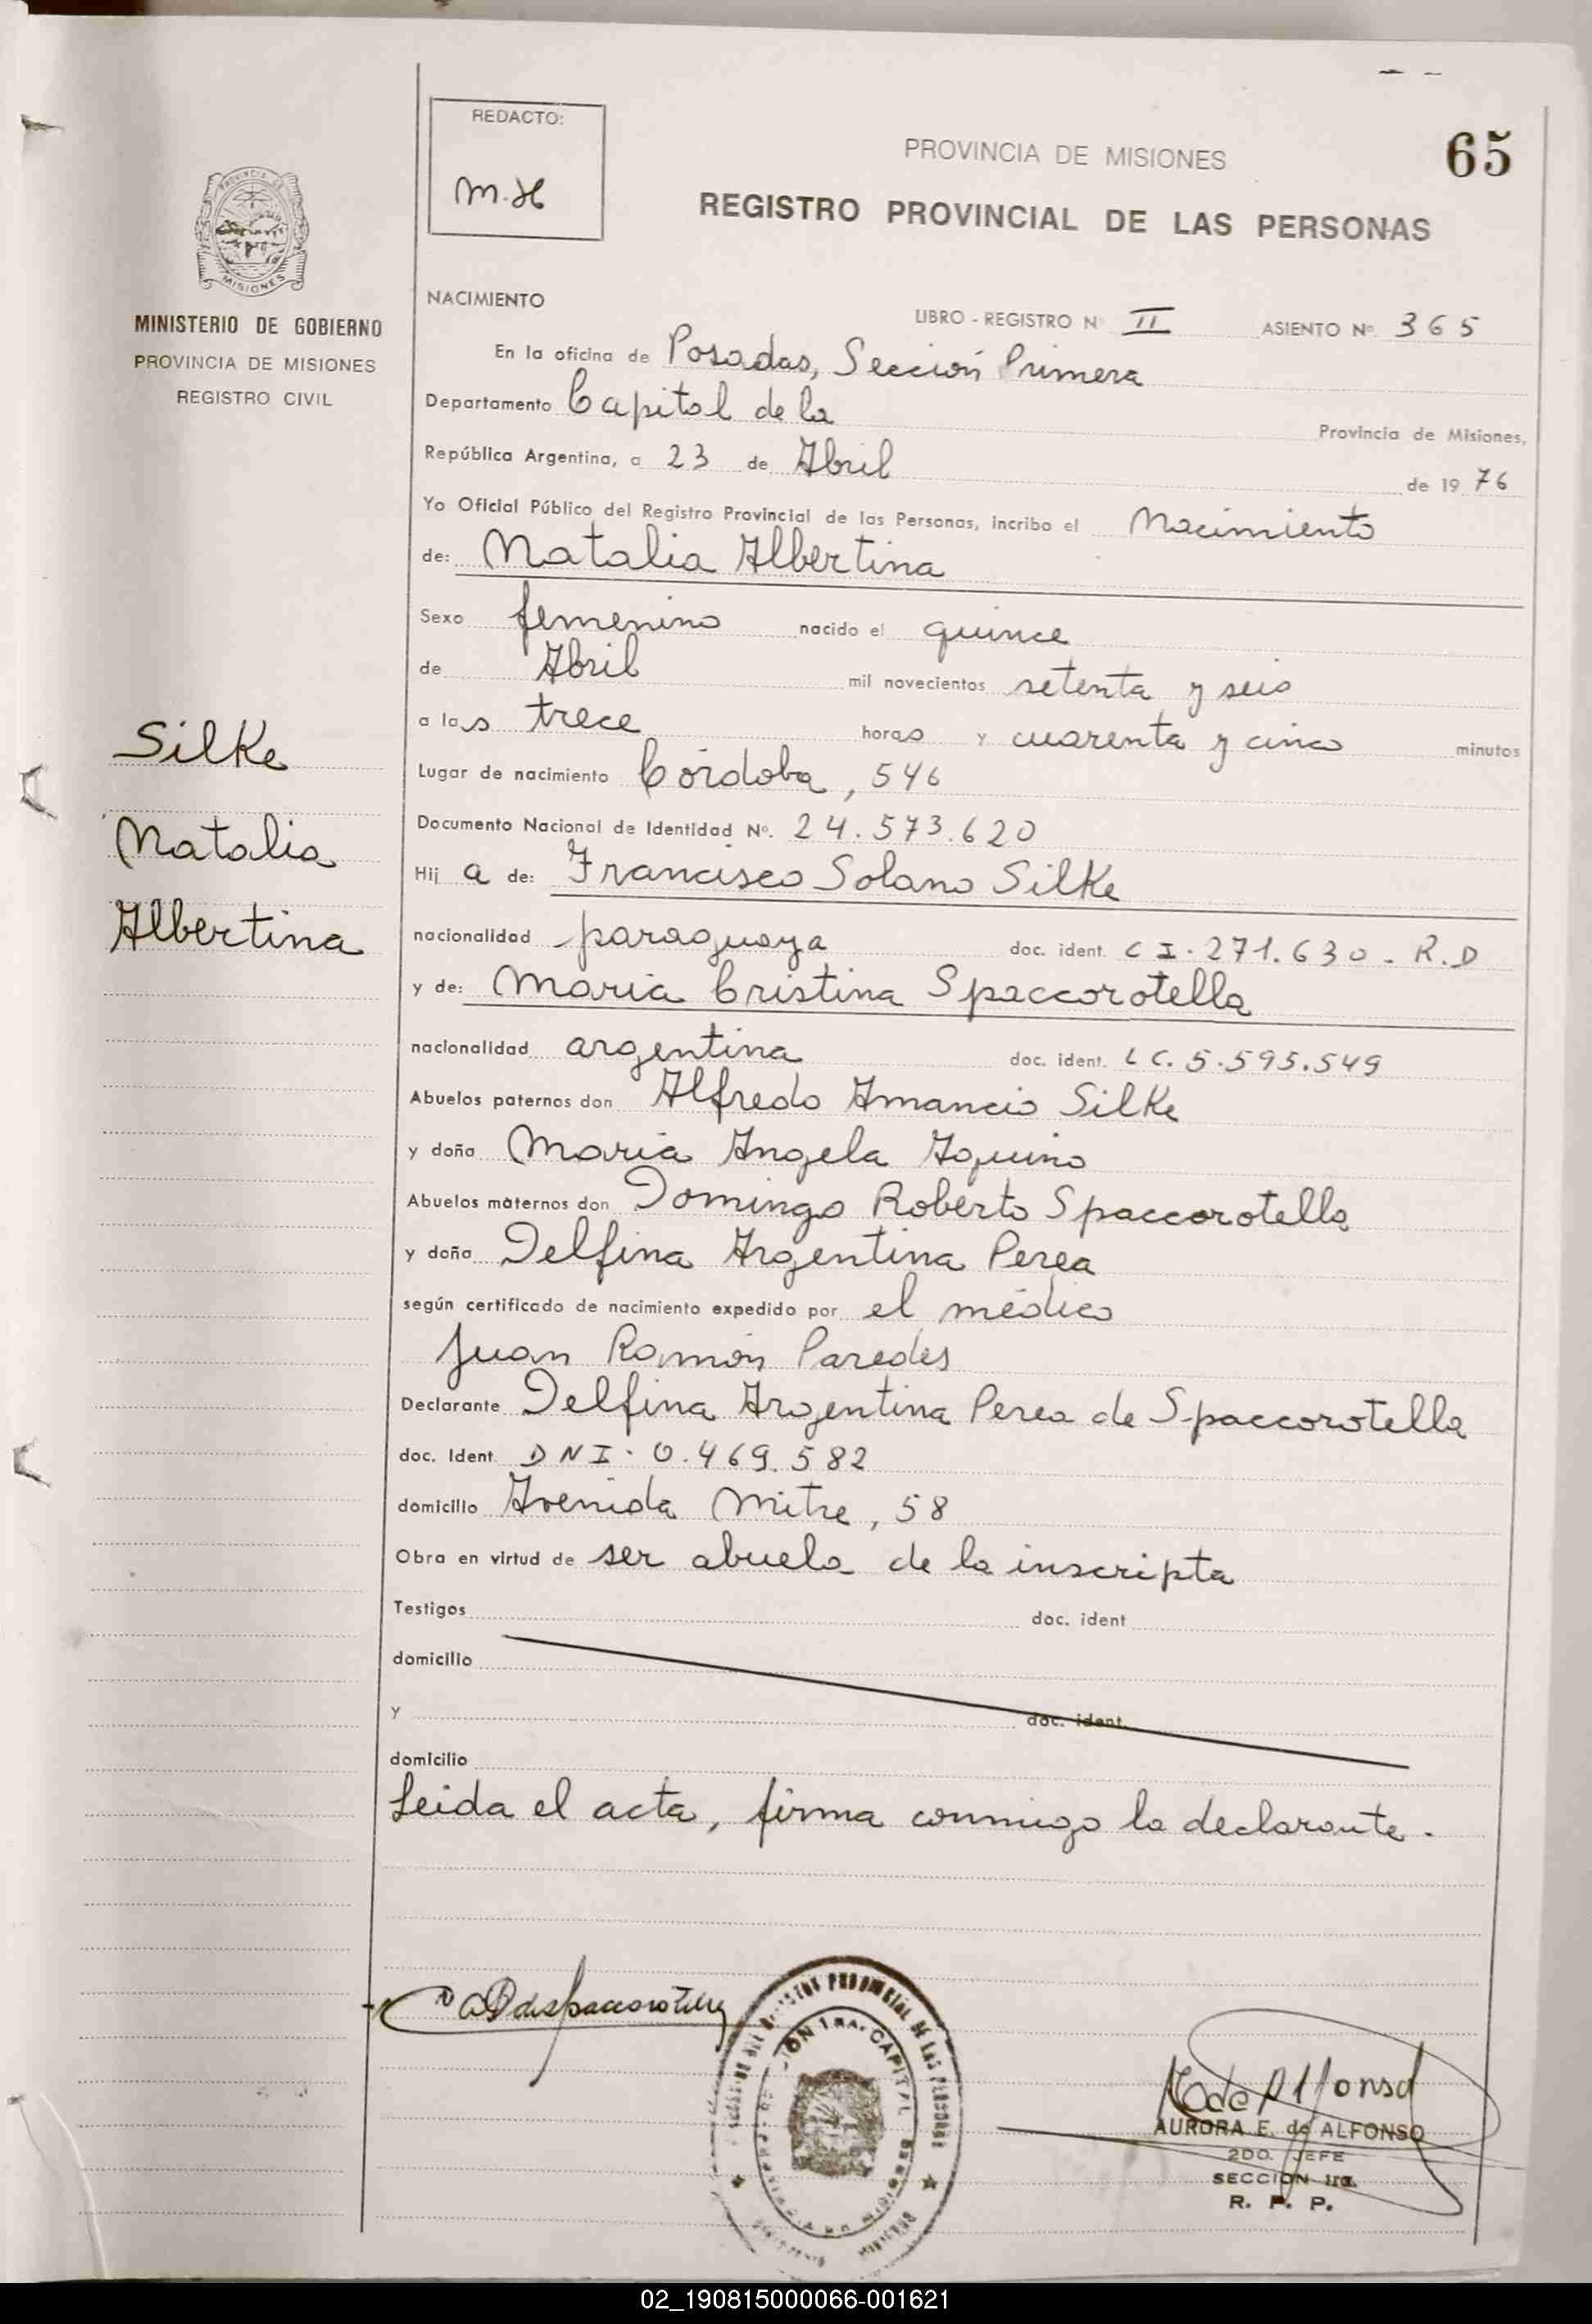 65
REDACTO:
M.H
PROVINCIA DE MISIONES
REGISTRO PROVINCIAL DE LAS PERSONAS
PROVINCIA DE
MISIONES
MINISTERIO DE GOBIERNO
PROVINCIA DE MISIONES
REGISTRO CIVIL
Silke
Natalia
Albertina
NACIMIENTO
LIBRO - REGISTRO Nº II ASIENTO Nº 365
En la oficina de Posadas, Sección Primera
Departamento Capital de la Provincia de Misiones,
República Argentina, a 23 de Abril de 1976
Yo Oficial Público del Registro Provincial de las Personas, incribo el Nacimiento
de: Natalia Albertina
Sexo femenino nacido el quince
de Abril mil novecientos setenta y seis
a las trece horas y cuarenta y cinco minutos
Lugar de nacimiento Córdoba, 546
Documento Nacional de Identidad Nº. 24.573.620
Hij a de: Francisco Solano Silke
nacionalidad paraguaya doc. ident. C I. 271.630 - R.D
y de: María Cristina Spaccorotella
nacionalidad argentina doc. ident. L C. 5.595.549
Abuelos paternos don Alfredo Amancio Silke
y doña María Angela Aquino
Abuelos maternos don Domingo Roberto Spaccorotella
y doña Delfina Argentina Perea
según certificado de nacimiento expedido por el médico
Juan Ramón Paredes
Declarante Delfina Argentina Perea de Spaccorotella
doc. Ident. DNI. 0.469.582
domicilio Avenida Mitre, 58
Obra en virtud de ser abuela de la inscripta
Testigos doc. ident
domicilio
y doc. ident.
domicilio
Leida el acta, firma conmigo la declarante.
de Spaccorotella
CAPITAL
de Alfonso
AURORA E. de ALFONSO
2DO. JEFE
SECCION 1ra.
R. P. P.
02_190815000066-001621